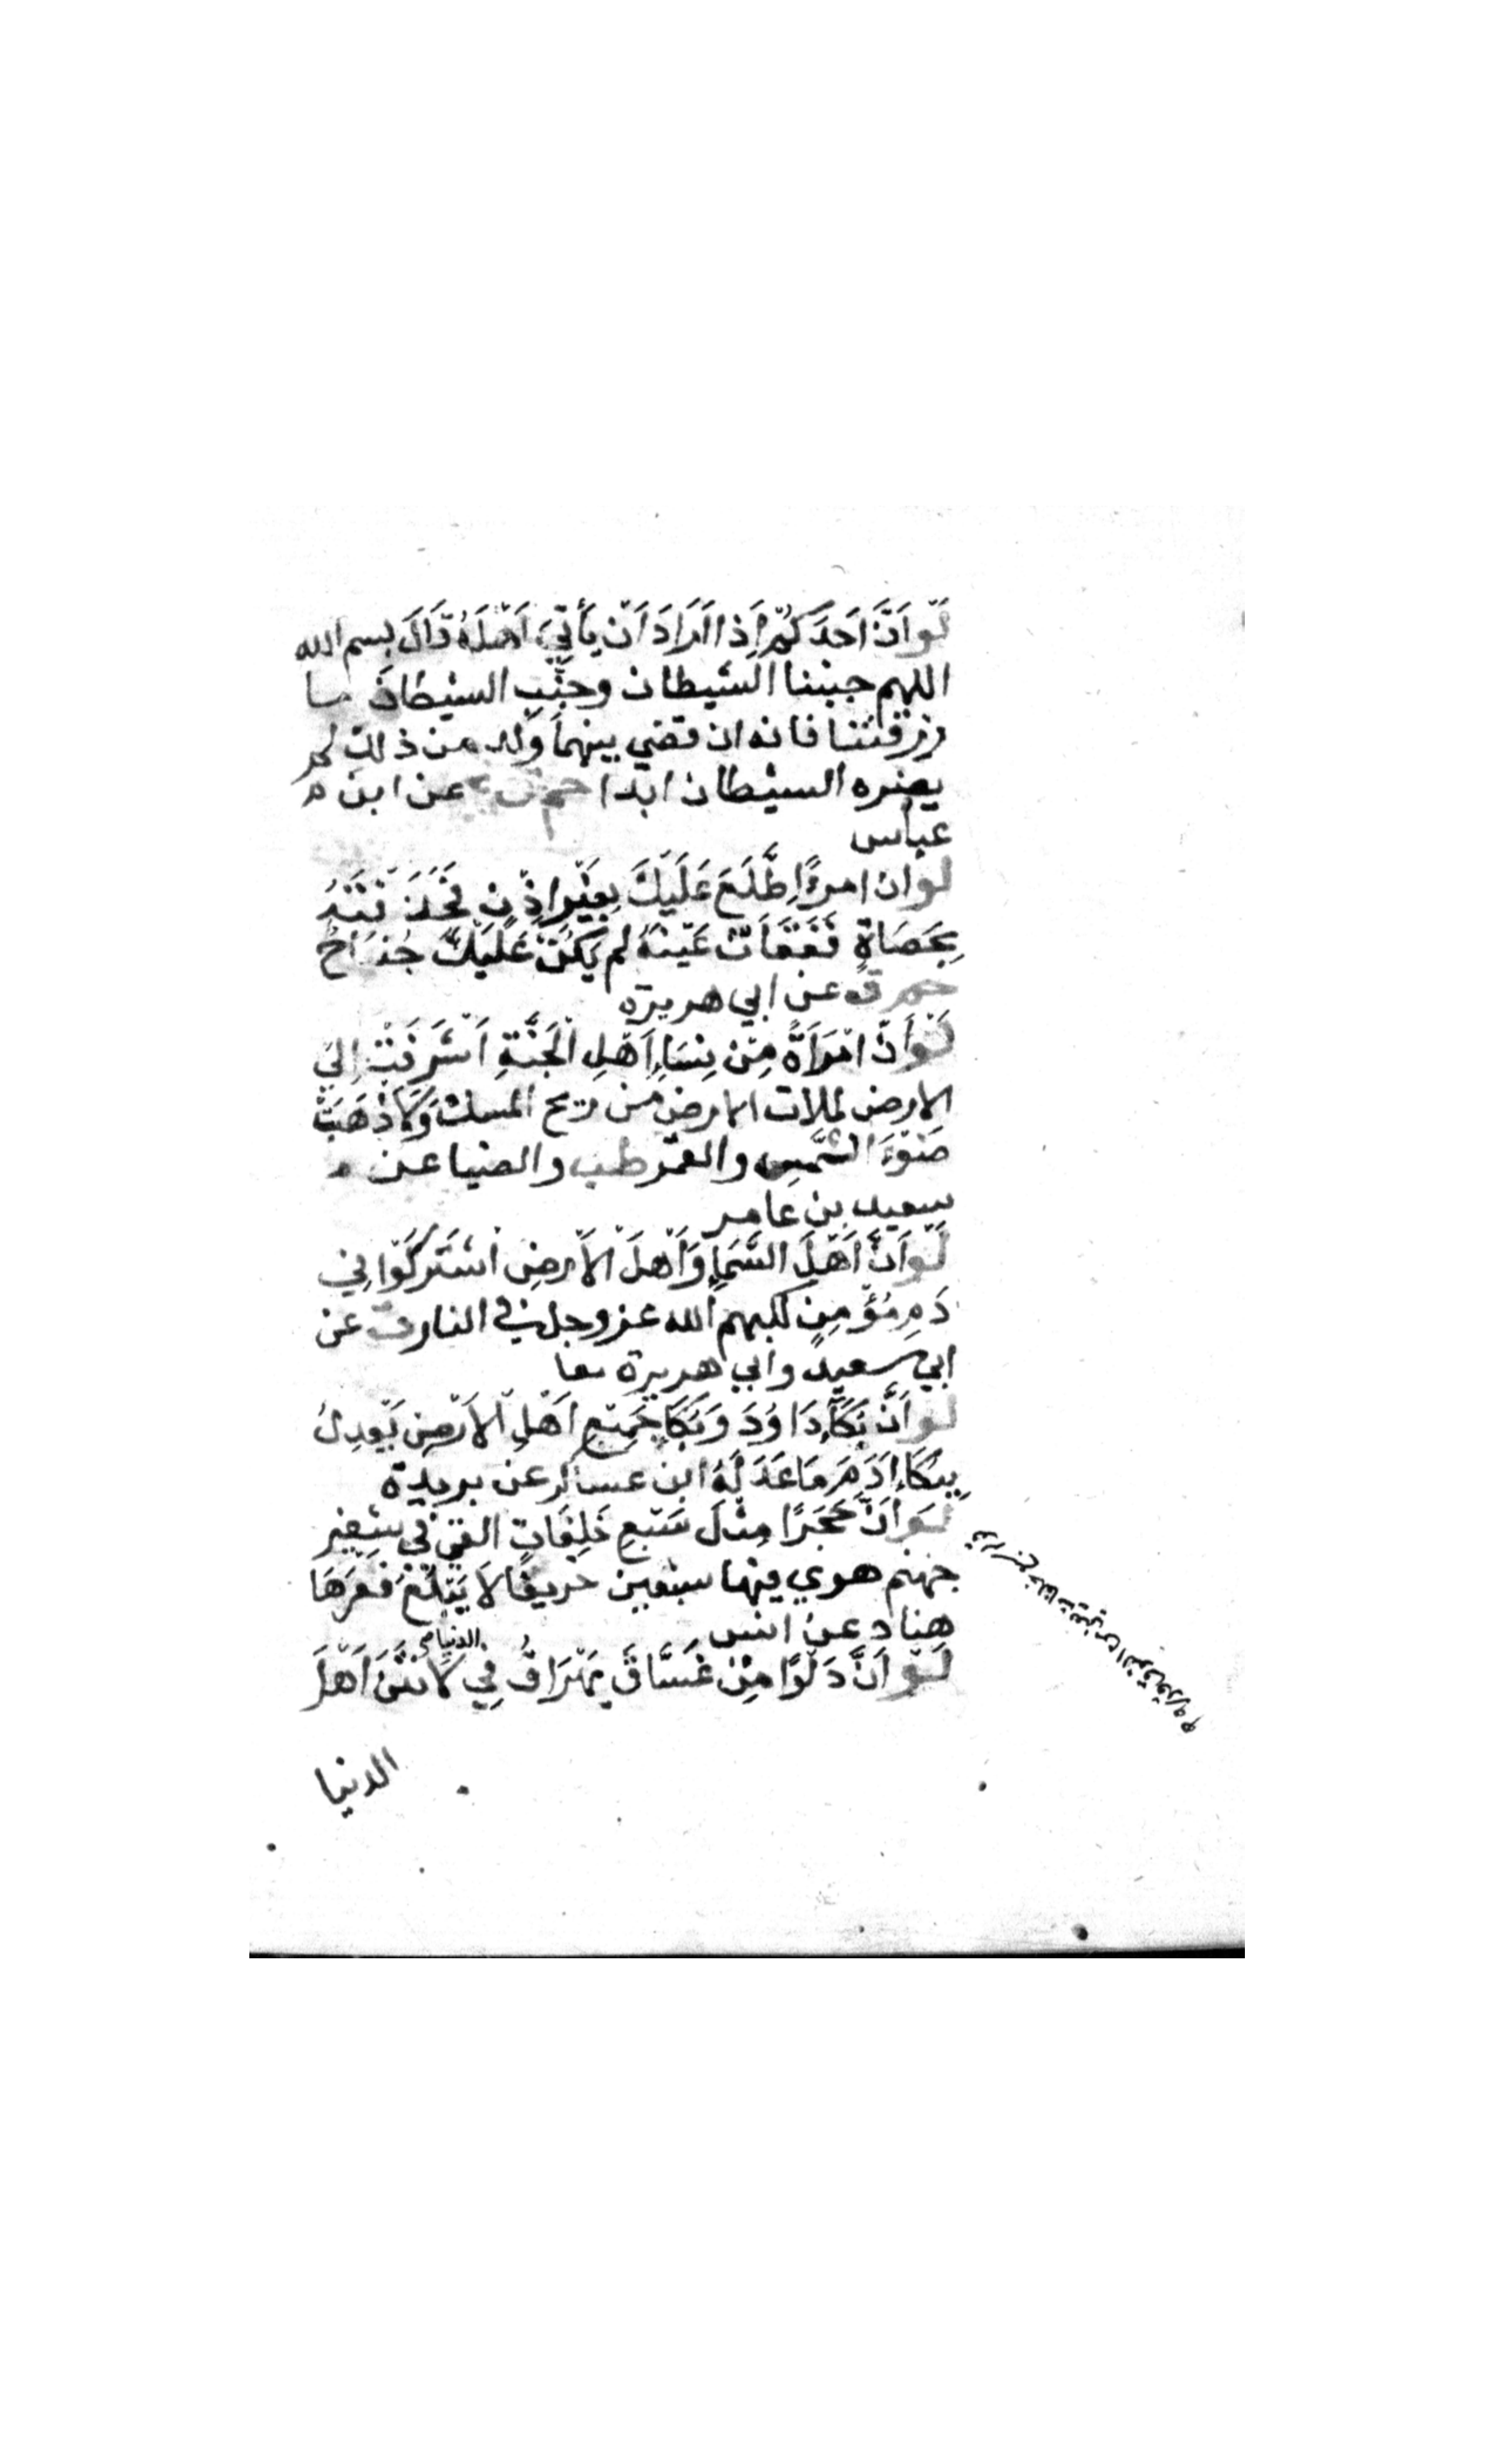 لَوْ اَنَّ اَحَدَكُمْ اِذَا اَرَادَ اَنْ يَأْتِيَ اَهْلَهُ قَالَ بسم الله
اللهم جنبنا الشيطان وجَنِّبِ الشيطان ما
رزقتنا فانه ان قضي بينهما وَلَد من ذلك لم
يضره الشيطان ابدا حم ق ع عن ابن
عباس
لو ان امرءًا اِطَّلَعَ عَلَيْكَ بِغَيْرِ اِذْنٍ فَخَذَفْتَهُ
بِحَصَاةٍ فَفَقَأْتَ عَيْنَهُ لم يَكُنْ عَلَيْكَ جُنَاحٌ
حم ق عن ابي هريرة
لَوْ اَنَّ امْرَأَةً مِنْ نِسَاءِ اَهْلِ الْجَنَّةِ اَشْرَفَتْ اِلَى
الارض لملات الارض من ريح المسك وَلَاذْهَبَتْ
ضَوْءَ الشَّمْسِ والقمر طب والضيا عن
سعيد بن عامر
لَوْ اَنَّ اَهْلَ السَّمَاءِ وَاَهْلَ الْاَرْضِ اشْتَرَكُوا فِي
دَمِ مُؤْمِنٍ لكبهم الله عز وجل في النار ت عن
ابي سعيد وابي هريرة معا
لو اَنَّ بَكَاءَ دَاوُدَ وَبَكَاءَ جَمِيْعِ اَهْلِ الْاَرْضِ يَعْدِلُ
بِبَكَاءِ اٰدَمَ مَا عَدَلَهُ ابن عساكر عن بريدة
لَوْ اَنَّ حَجَرًا مِثْلَ سَبْعِ خَلِفَاتٍ القي في شفير
جهنم هوي فيها سبعين خريفا لَا يَبْلُغُ قَعْرَهَا
هناد عن انس
لَوْ اَنَّ دَلْوًا مِنْ غَسَّاقٍ يُهَرَاقُ فِي الدنيا لَاَنْتَنَ اَهْلَ
الدنيا